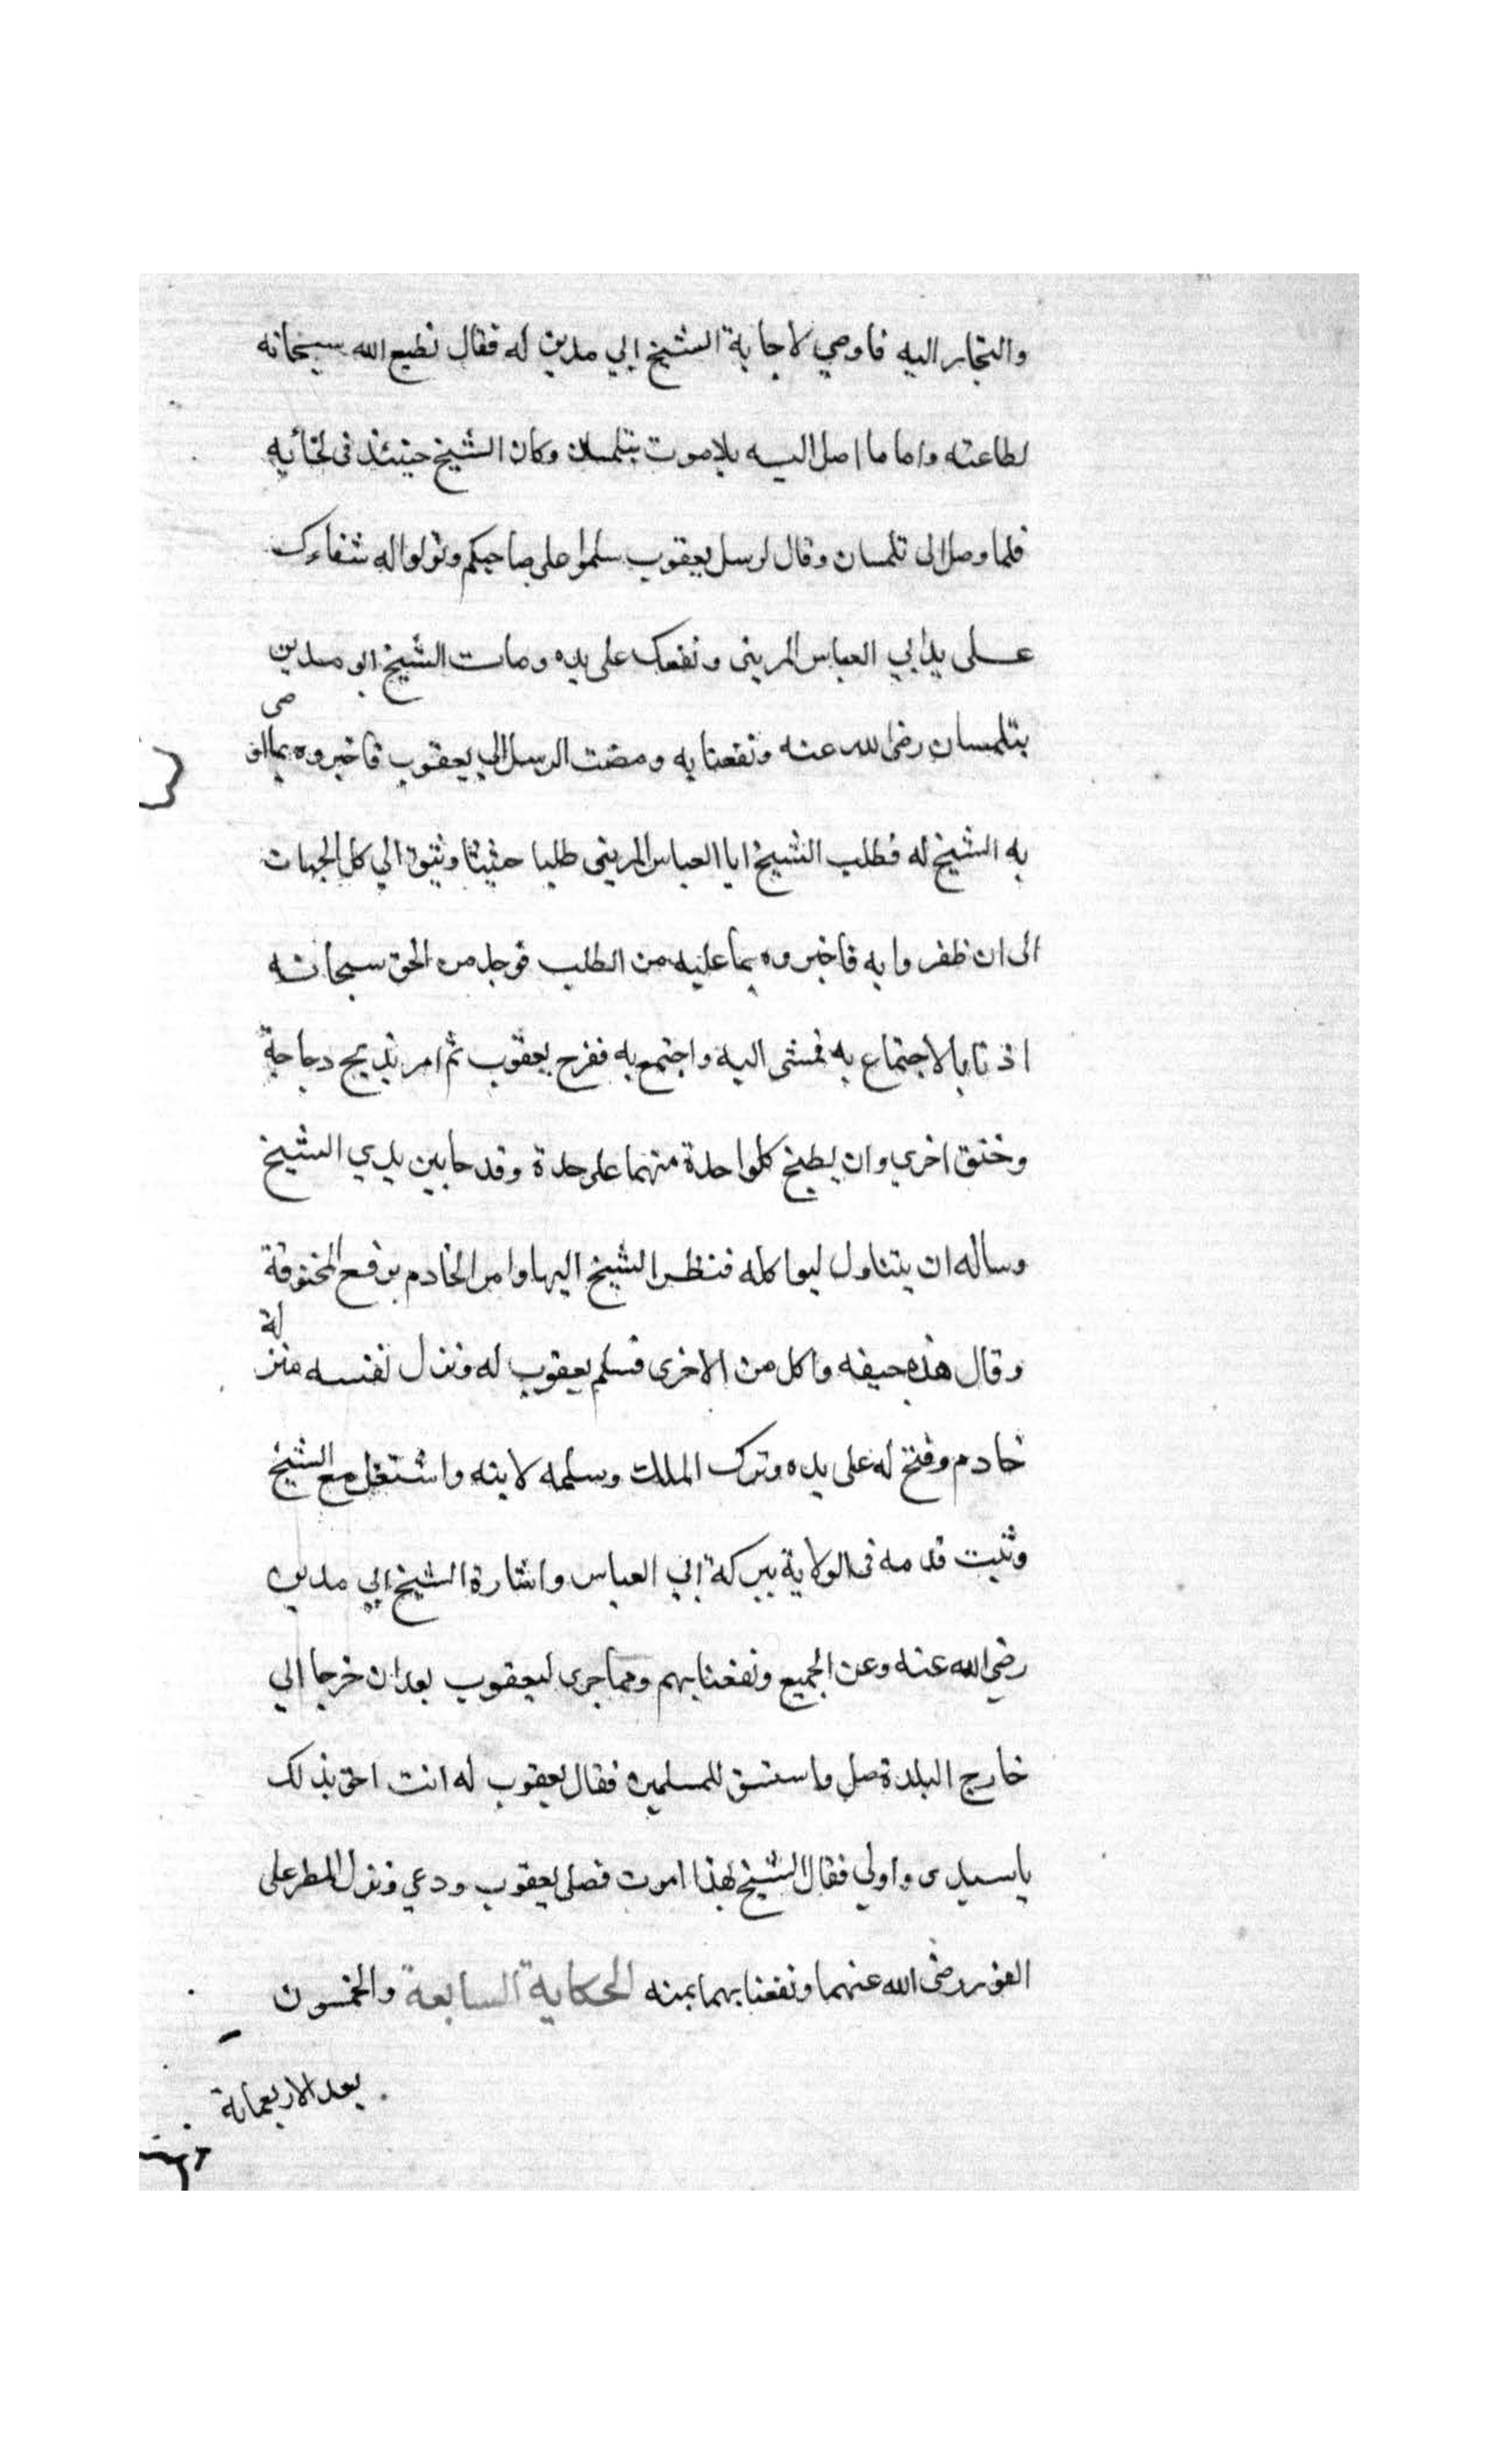 والتجار اليه فاوصي لاجابة الشيخ ابي مدين له فقال نطيع الله سبحانه
لطاعته واما ما اصل اليه بلاموت بتلمسان وكان الشيخ حينئذ في
فلما وصل الى تلمسان وقال لرسل يعقوب سلموا على صاحبكم وقولوا له شفاءك
على يد ابي العباس المريني ونفعك على يده ومات الشيخ ابو مدين
بتلمسان رضى الله عنه ونفعنا به ومضت الرسل الي يعقوب فاخبروه بما اوصى
به الشيخ له فطلب الشيخ ابا العباس المريني طلبا حثيثا الي كل الجهات
الى ان ظفروا به فاخبروه بما عليه من الطلب فوجد من الحق سبحانه
اذنا بالاجتماع به فمشى اليه واجتمع به ففرح يعقوب ثم امر بذبح دجاجة
وخنق اخري وان يطبخ كلواحدة منهما على حدة وقدما بين يدي الشيخ
وساله ان يتناول ليواكله فنظر الشيخ اليها وامر الخادم برفع المخنوقة
وقال هذه جيفه واكل من الاخرى فسلم يعقوب له ونزل نفسه منزلة
خادم وفتح له على يده وترك الملك وسلمه لابنه واشتغل مع الشيخ
وثبت قدمه في الولاية ببركة ابي العباس واشارة الشيخ ابي مدين
رضي الله عنه وعن الجميع ونفعنا بهم ومما جرى ليعقوب بعد ان خرجا الي
خارج البلدة صل واستسق للمسلمين فقال يعقوب له انت احق بذلك
ياسيدى واولي فقال الشيخ بهذا امرت فصلى يعقوب ودعي ونزل المطر على
الفور رضى الله عنهما ونفعنا بهما بمنه الحكاية السابعة والخمسون
بعد الاربعماية